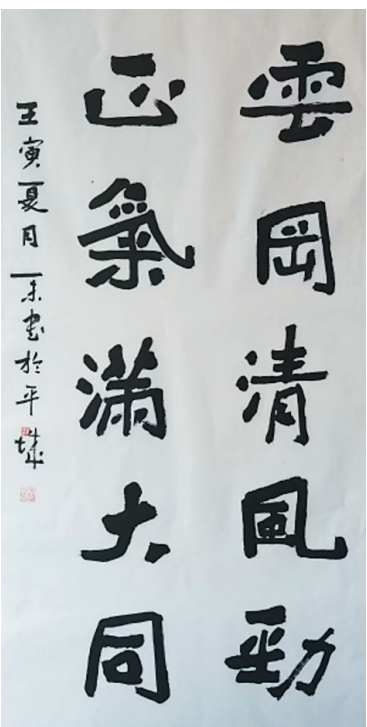 雲岡清風勁
正氣滿大同
壬寅夏月一未書於平城